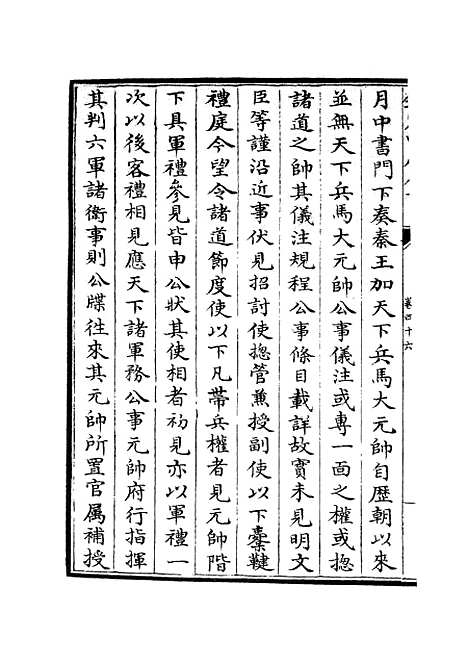 月中書門下奏秦王加天下兵馬大元帥自歷朝以來
並無天下兵馬大元帥公事儀注或專一面之權或揔
諸道之帥其儀注規程公事條目載詳故實未見明文
臣等謹沿近事伏見招討使揔管兼授副使以下櫜鞬
禮庭今望令諸道節度使以下凡帶兵權者見元帥階
下具軍禮參見皆申公狀其使相者初見亦以軍禮一
次以後客禮相見應天下諸軍務公事元帥府行指揮
其判六軍諸衛事則公牒往來其元帥所置官属補授
卷四十六